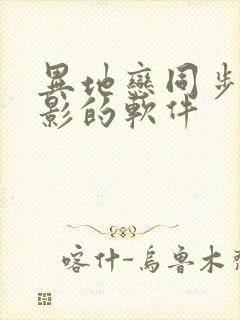 異地戀同步
影的軟件
喀什-烏魯木